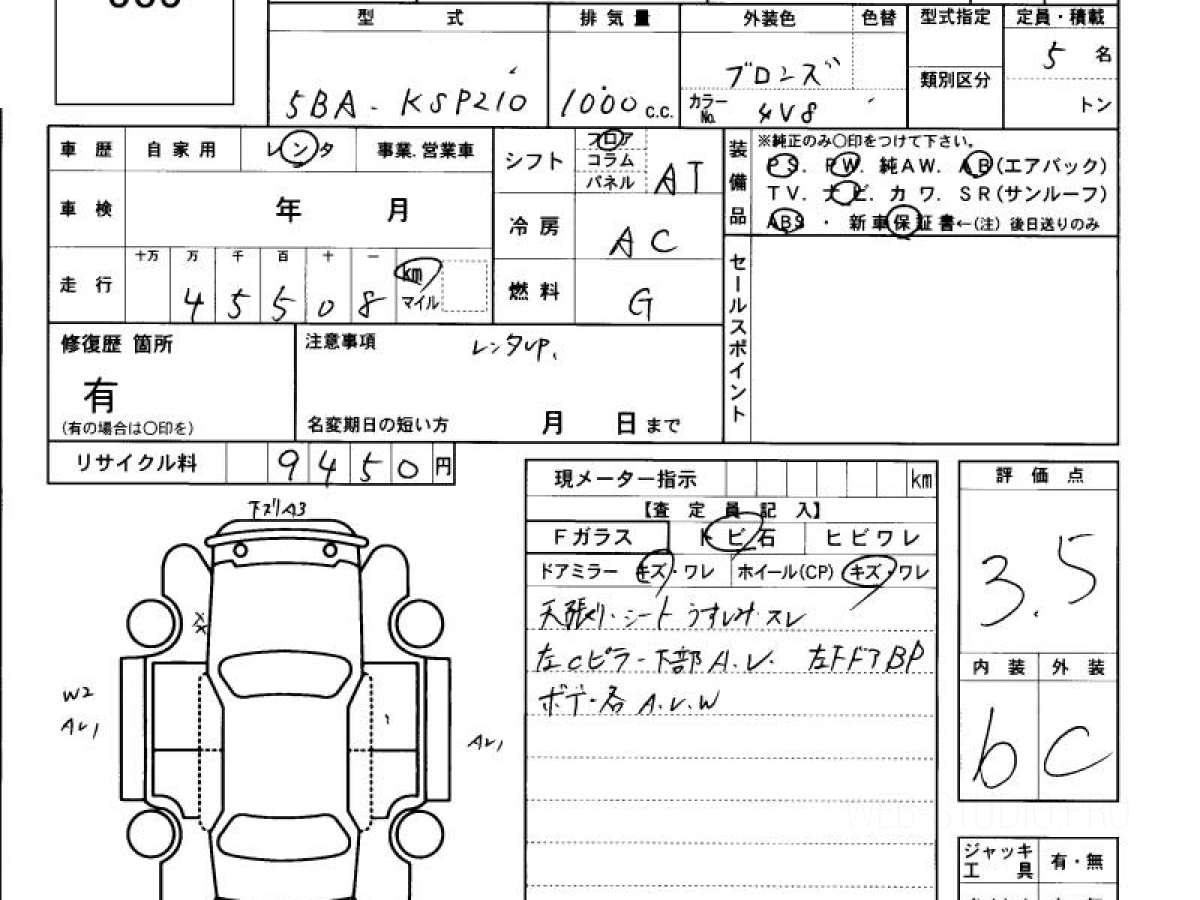 型 式 排気量 外装色 色替 型式指定 定員・積載
5BA - KSP210 1000 c.c. ブロンズ 5 名
カラーNo. 4V8 類別区分 トン
車歴 自家用 レンタ 事業.営業車
車検 年 月
走行 十万 万 千 百 十 一
4 5 5 0 8 km マイル
シフト フロア コラム パネル AT
冷房 AC
燃料 G
装備品 ※純正のみ〇印をつけて下さい。
PS. PW. 純AW. AB(エアバック)
TV. ナビ. カワ. SR(サンルーフ)
ABS ・ 新車保証書←(注) 後日送りのみ
セールスポイント
修復歴 箇所
有
(有の場合は〇印を)
注意事項 レンタUP.
名変期日の短い方 月 日まで
リサイクル料 9 4 5 0 円
下ズリA3
W2
AU1
AU1
現メーター指示 km
【査定員記入】
Fガラス トビ石 ヒビワレ
ドアミラー キズ・ワレ ホイール(CP) キズ・ワレ
天張り・シート うすしみ・スレ
左Cピラー下部 A.U. 左FドアBP
ボデー各 A.U.W
評価点
3.5
内装 外装
b C
ジャッキ
工具 有・無
WEB-STUDIO.PRO